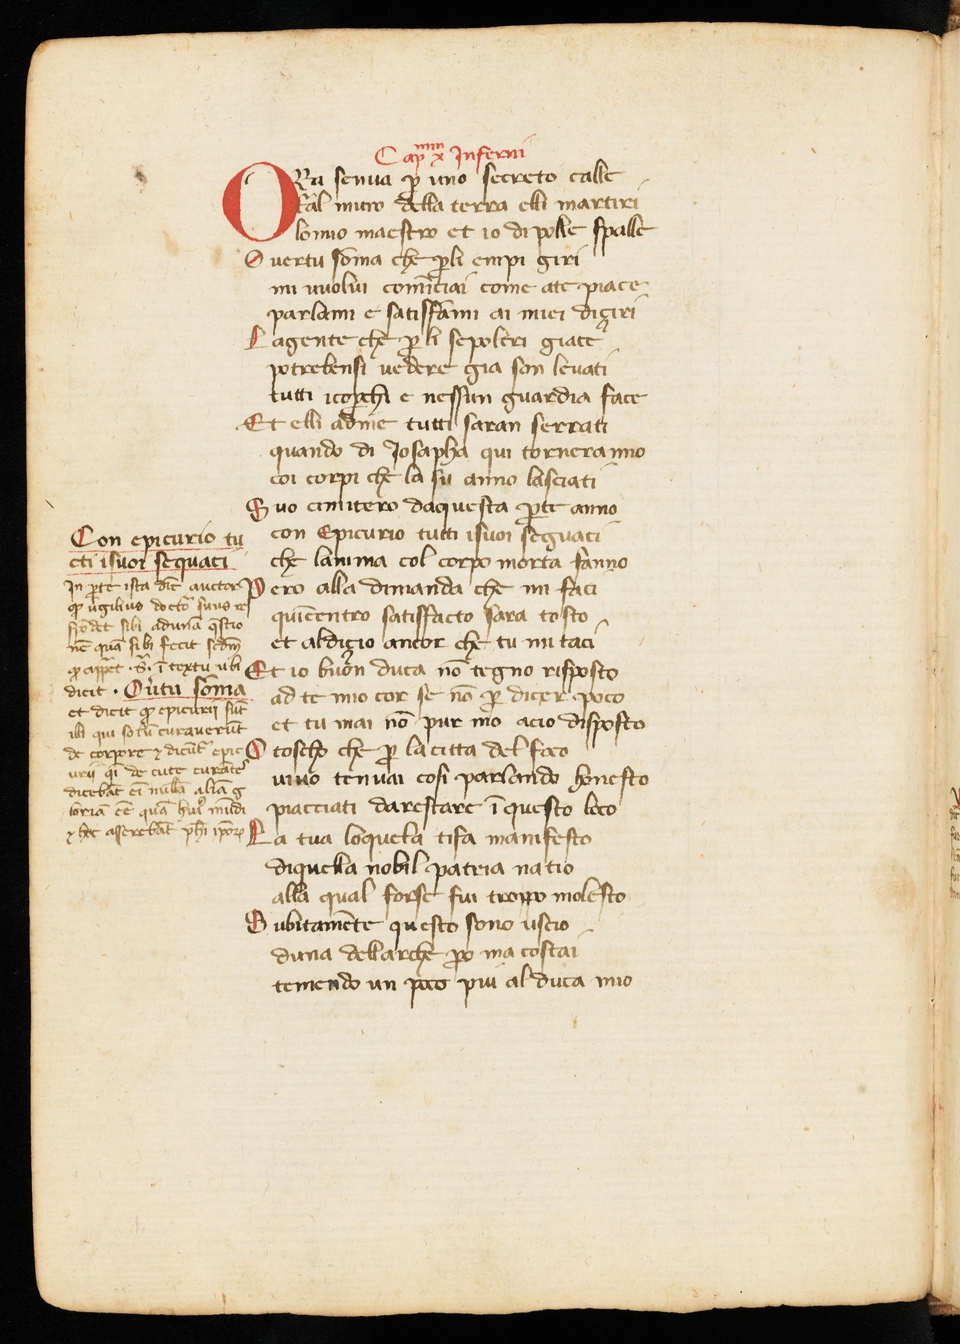 Capm x Inferni
ORa senua p uno secreto calle
tral muro della terra elli martiri
lomio maestro et io dipolle spalle
O uertu soma che pli empi giri
mi uuolui comiciai come ate piace
parlami e satisffami ai miei digiri
Lagente che p li sepolcri giace
potrebensi uedere gia son leuati
tutti icopchi e nessun guardia face
Et elli adme tutti saran serrati
quando di Josapha qui torneranno
coi corpi che la su anno lasciati
Suo cimitero daquesta pte anno
con Epicurio tutti isuoi seguaci
che lanima col corpo morta fanno
Pero alla dimanda che mi faci
quicentro satisfacto sara tosto
et aldigio ancor che tu mi taci
Et io buon duca no tegno risposto
ad te mio cor se no p dicer poco
et tu mai no pur mo acio disposto
O toscho che p la citta del foco
uiuo tenuai cosi parlando honesto
piacciati darestare i questo loco
La tua loquela tifa manifesto
diquella nobil patria natio
alla qual forse fui troppo molesto
Subitamete questo sono uscio
duna dellarche po ma costai
temendo un poco piu al duca mio
Con epicurio tu
cti isuoi sequaci
In pte ista dic auctor
qp uirgilius docto suus re
spodet sibi aduna qstio
ne qua sibi fecit
i textu ubi
dicit . O uitu soma
et dicit qp epicurii sut
illi qui solu curauerut
de corpore z dicut epic
urii qi de cute curates
dicebat ei nulla alia g
loria ee qua hui mudi
z hec asserebat phi ipor